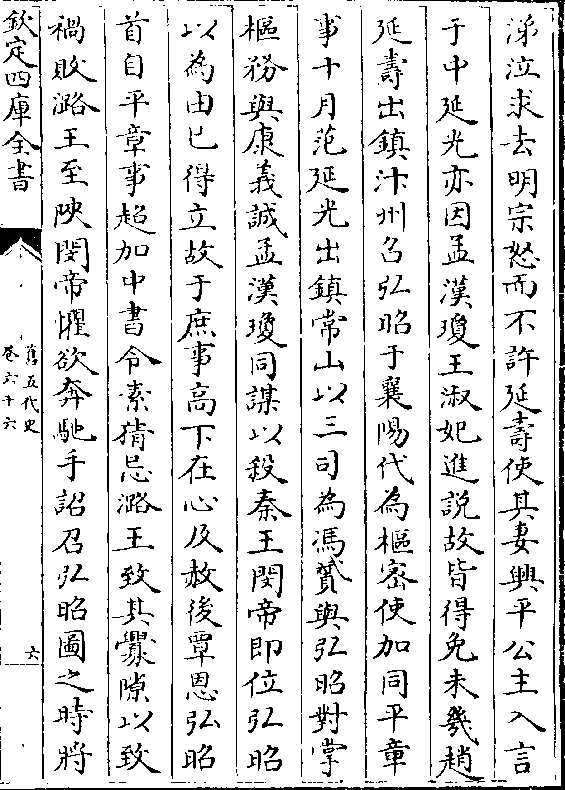 涕泣求去明宗怒而不許延壽使其妻興平公主入言
于中延光亦因孟漢瓊王淑妃進説故皆得免未幾趙
延壽出鎮汴州召弘昭于襄陽代為樞密使加同平章
事十月范延光出鎮常山以三司為馮贇與弘昭對掌
樞務與康義誠孟漢瓊同謀以殺秦王閔帝即位弘昭
以為由已得立故于庶事高下在心及赦後覃恩弘昭
首自平章事超加中書令素猜忌潞王致其釁隙以致
禍敗潞王至陜閔帝懼欲奔馳手詔召弘昭圖之時將
欽定四庫全書
舊五代史
卷六十六
六